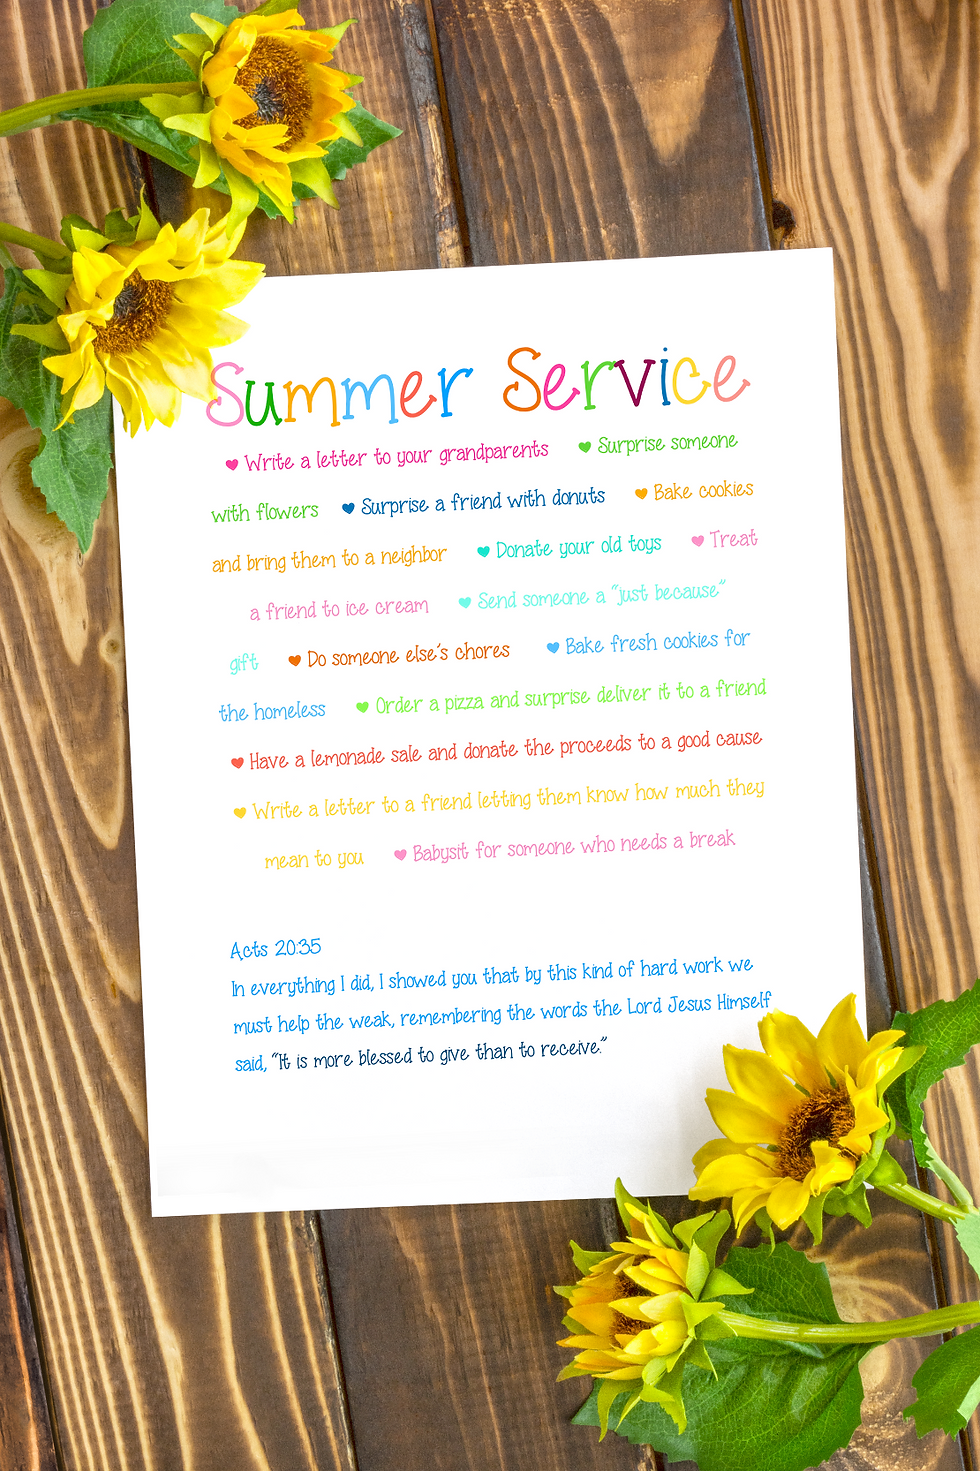 Summer Service
♥ Write a letter to your grandparents ♥ Surprise someone
with flowers ♥ Surprise a friend with donuts ♥ Bake cookies
and bring them to a neighbor ♥ Donate your old toys ♥ Treat
a friend to ice cream ♥ Send someone a "just because"
gift ♥ Do someone else's chores ♥ Bake fresh cookies for
the homeless ♥ Order a pizza and surprise deliver it to a friend
♥ Have a lemonade sale and donate the proceeds to a good cause
♥ Write a letter to a friend letting them know how much they
mean to you ♥ Babysit for someone who needs a break
Acts 20:35
In everything I did, I showed you that by this kind of hard work we
must help the weak, remembering the words the Lord Jesus Himself
said, "It is more blessed to give than to receive."